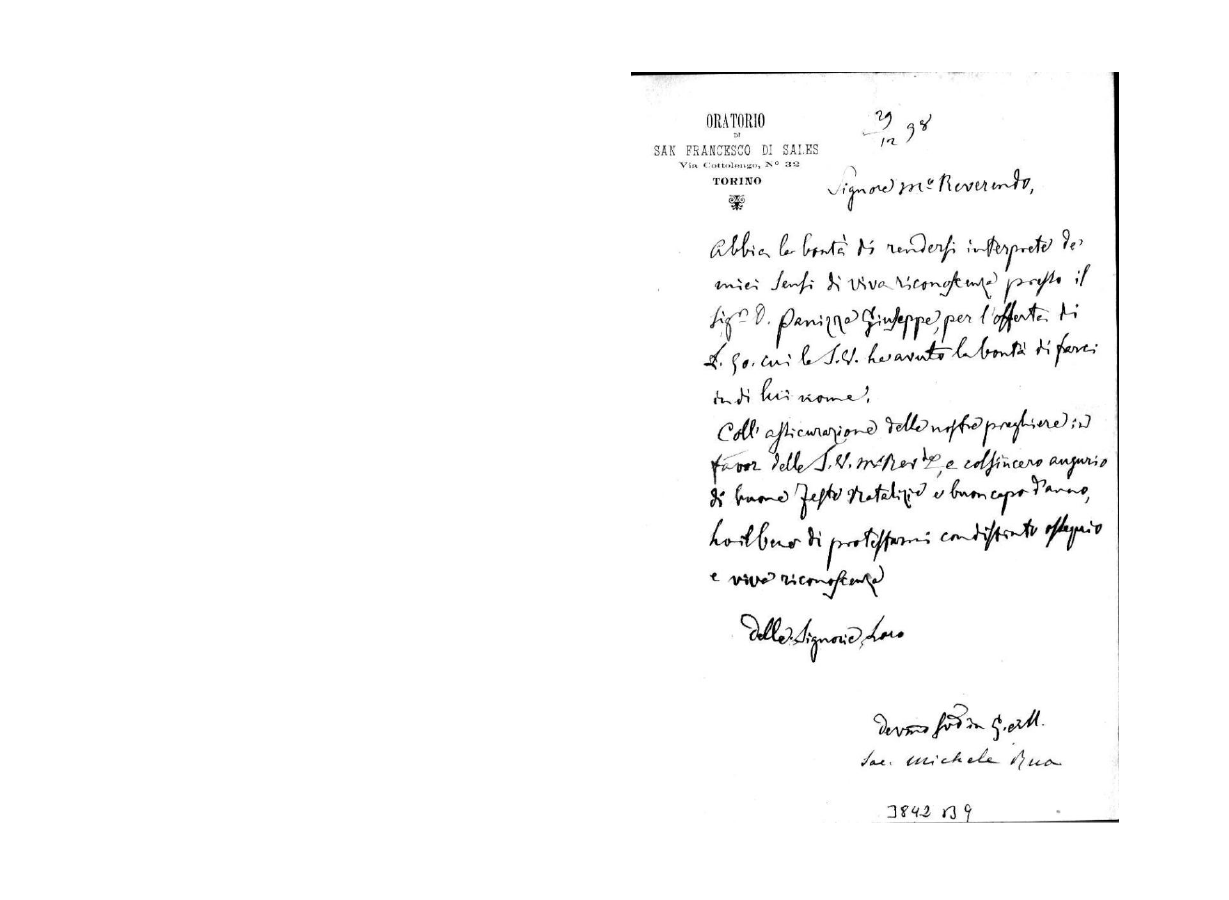 ORATORIO
DI
SAN FRANCESCO DI SALES
Via Cottolengo, Nº 32
TORINO
29
12 98
Signore M.º Reverendo,
Abbia la bontà di rendersi interprete de'
miei sensi di viva riconoscenza presso il
Sigr D. Panizza Giuseppe, per l'offerta di
L. 50. cui la S.V. ha avuto la bontà di farci
in di lui nome.
Coll' assicurazione delle nostre preghiere in
favor della S.V. M.º Rev.da, e col sincero augurio
di buone Feste Natalizie e buon capo d'anno,
ho il bene di protestarmi con distinto ossequio
e viva riconoscenza
delle Signorie Loro
Devmo in G. e M.
Sac. Michele Rua
3842 B 9